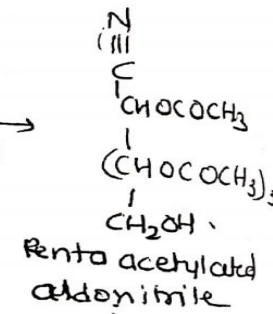 N
|||
C
|
CHOCOCH3
|
(CHOCOCH3)3
|
CH2OH.
Penta acetylated
aldonitrile